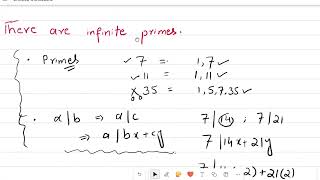 There are infinite primes.
• Primes ✓ 7 = 1, 7 ✓
✓ 11 = 1, 11 ✓
✗ 35 = 1, 5, 7, 35 ✓
• a|b ⇒ a|c 7|14 ; 7|21
⇒ a|bx+cy 7|14x+21y
2)+21(2)